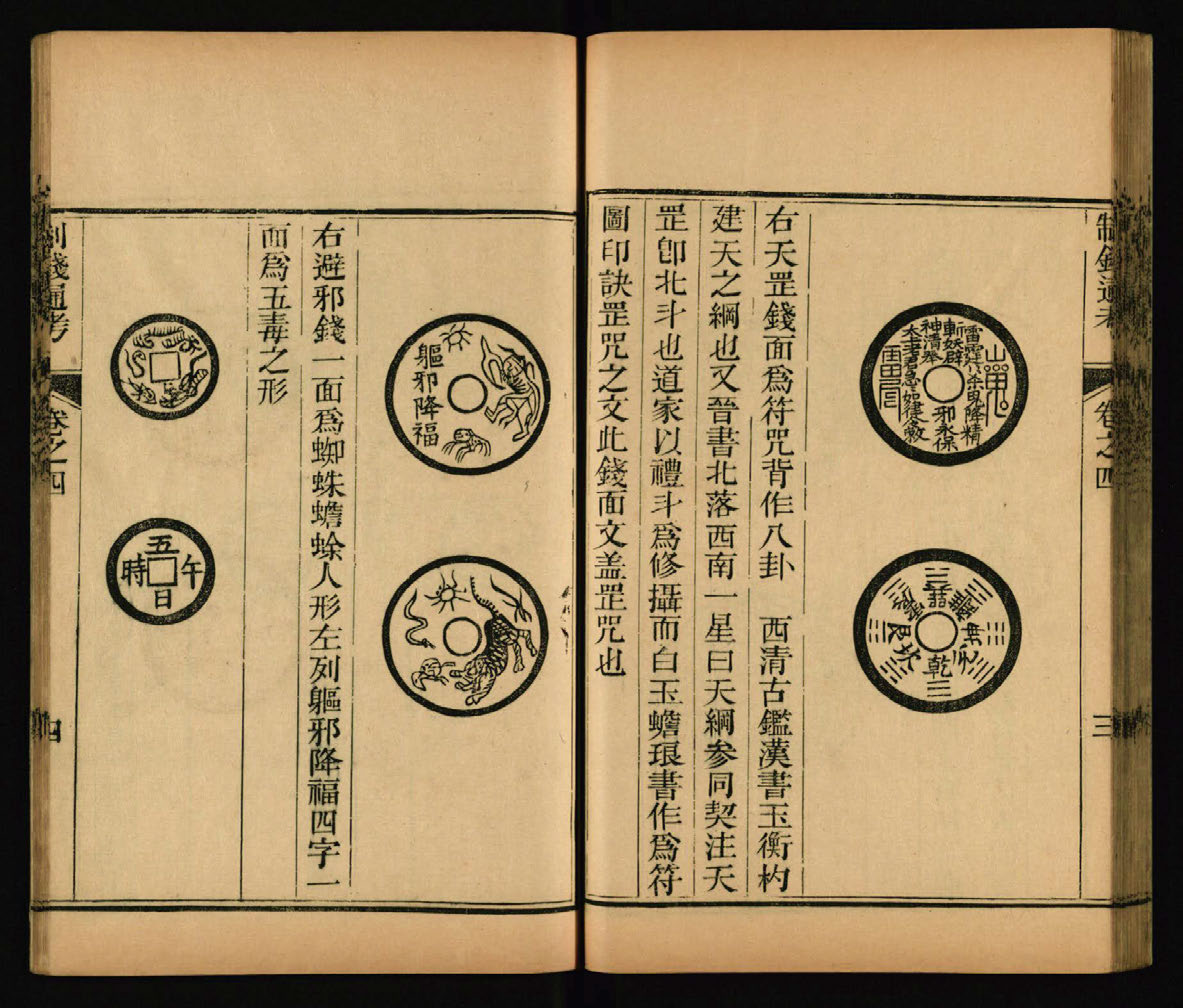 制錢通考
卷之四
三
雷霆八
降精
斬妖辟邪永保
神清
急如律令敕
乾
坎
艮
右天罡錢面爲符咒背作八卦　西清古鑑漢書玉衡杓
建天之綱也又晉書北落西南一星曰天綱參同契注天
罡卽北斗也道家以禮斗爲修攝而白玉蟾琅書作爲符
圖印訣罡咒之文此錢面文盖罡咒也
軀邪降福
右避邪錢一面爲蜘蛛蟾蜍人形左列軀邪降福四字一
面爲五毒之形
五日午時
制錢通考
卷之四
四